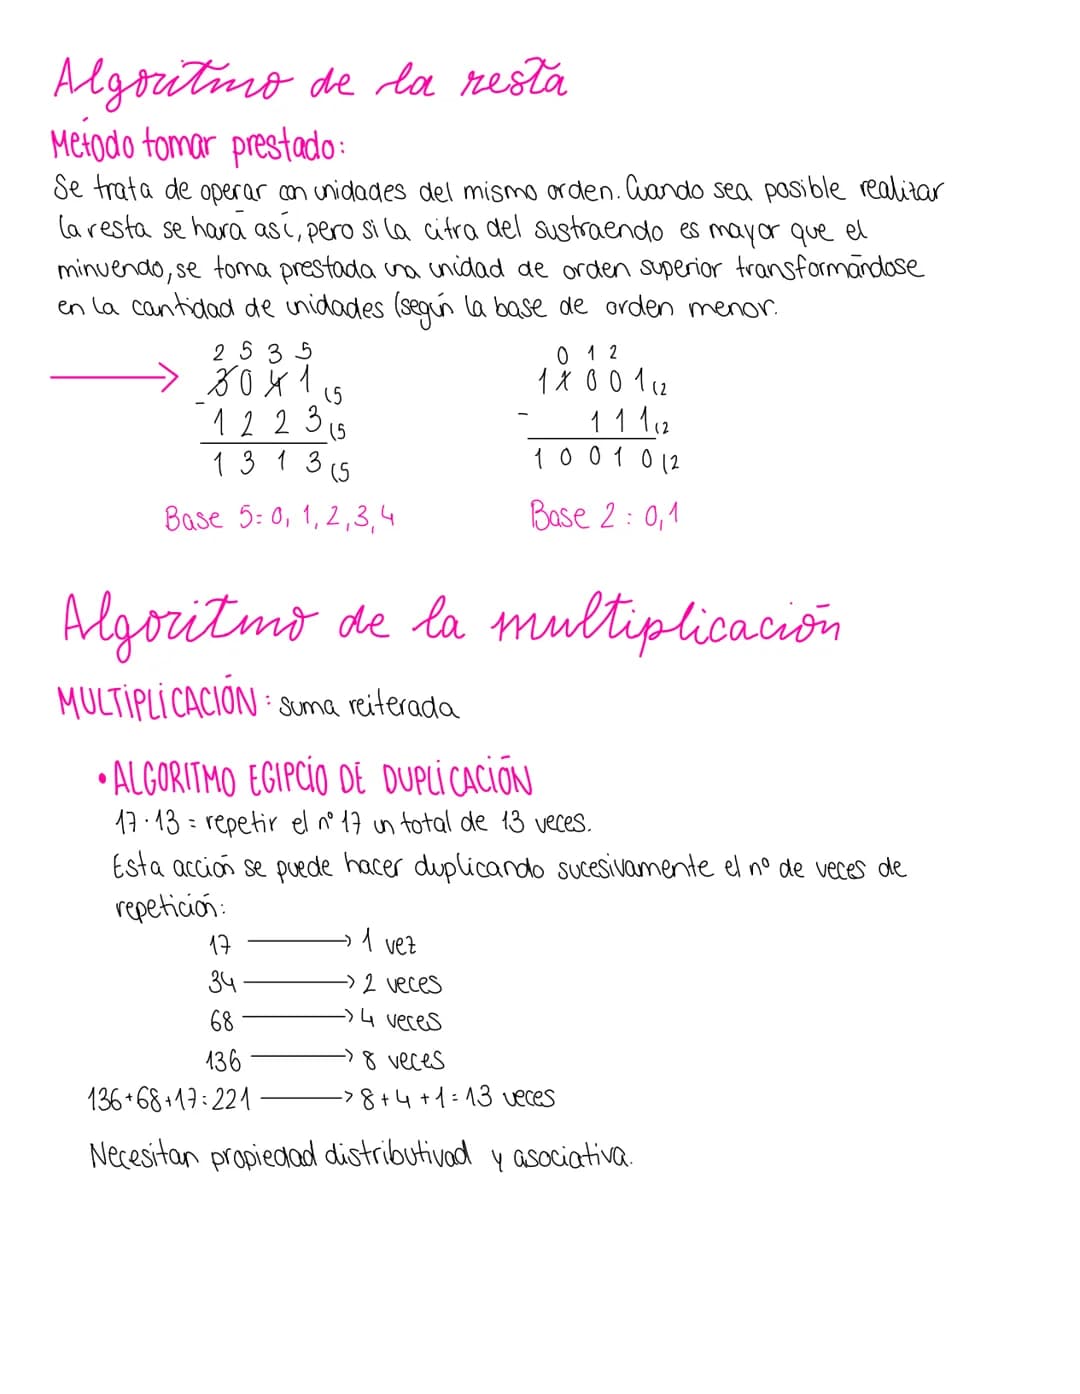 Algoritmo de la resta
Método tomar prestado:
Se trata de operar con unidades del mismo orden. Cuando sea posible realizar
la resta se hará así, pero si la cifra del sustraendo es mayor que el
minuendo, se toma prestada una unidad de orden superior transformándose
en la cantidad de unidades (según la base de orden menor.
2 5 3 5
0 1 2
3 0 4 1 (5
1 1 0 0 1 (2
- 1 2 2 3 (5
- 1 1 1 (2
1 3 1 3 (5
1 0 0 1 0 (2
Base 5: 0, 1, 2, 3, 4
Base 2: 0,1
Algoritmo de la multiplicación
MULTIPLICACIÓN: suma reiterada
• ALGORITMO EGIPCIO DE DUPLICACIÓN
17·13 = repetir el nº 17 un total de 13 veces.
Esta acción se puede hacer duplicando sucesivamente el nº de veces de
repetición:
17 → 1 vez
34 → 2 veces
68 → 4 veces
136 → 8 veces
136+68+17=221 → 8+4+1=13 veces
Necesitan propiedad distributivad y asociativa.